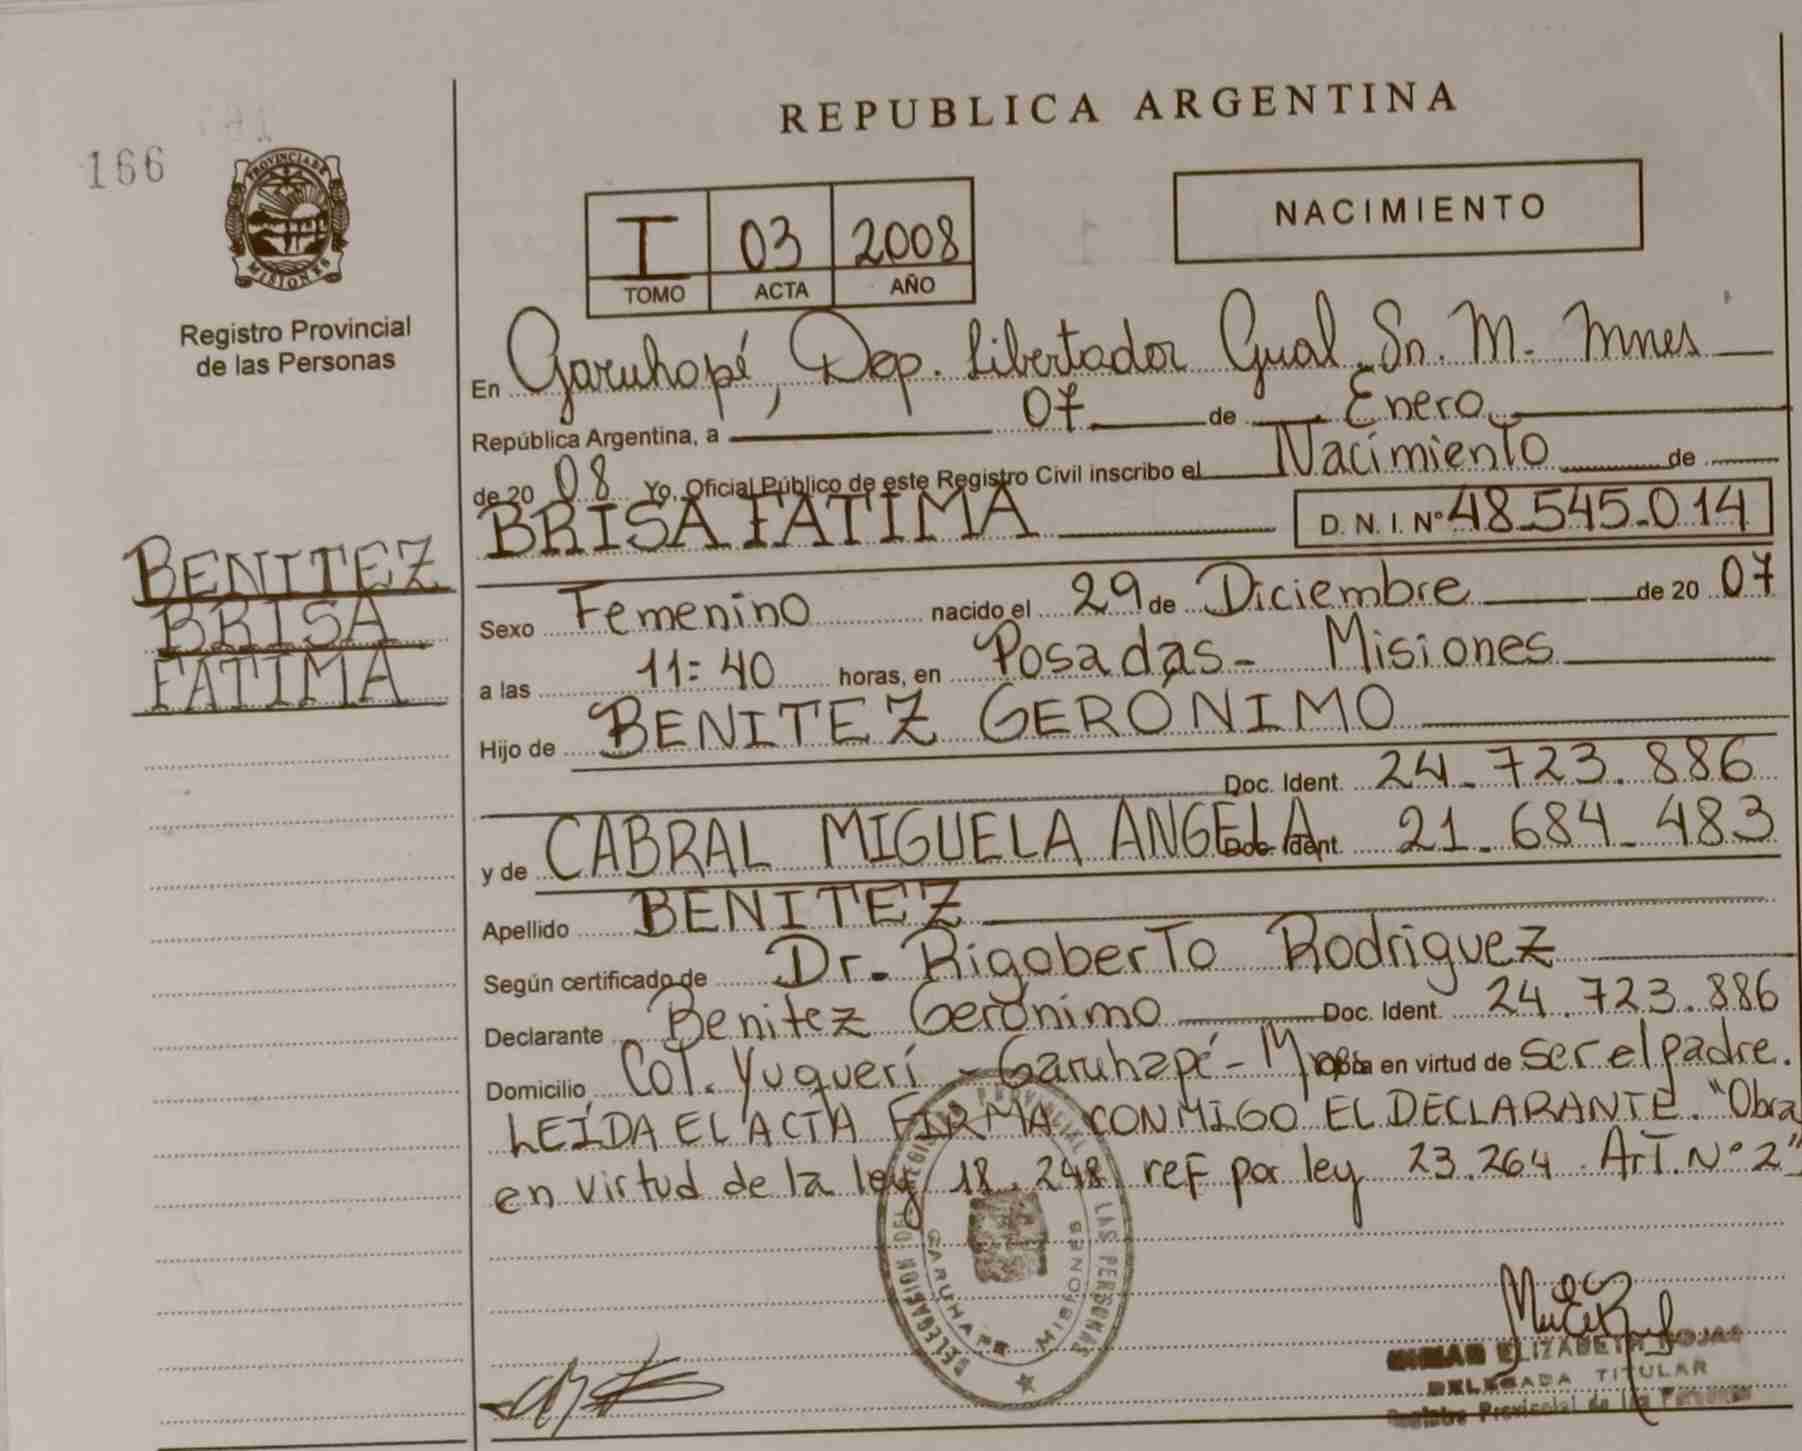 REPUBLICA ARGENTINA
166
PROVINCIA DE
MISIONES
Registro Provincial
de las Personas
I 03 2008
TOMO ACTA AÑO
NACIMIENTO
En Garuhapé, Dep. Libertador Gual Sn. M. Mnes
República Argentina, a 07 de Enero
de 20 08 Yo, Oficial Público de este Registro Civil inscribo el Nacimiento de
BRISA FATIMA D. N. I. Nº 48.545.014
BENITEZ
BRISA
FATIMA
Sexo Femenino nacido el 29 de Diciembre de 20 07
a las 11:40 horas, en Posadas - Misiones
Hijo de BENITEZ GERÓNIMO
Doc. Ident. 24.723.886
y de CABRAL MIGUELA ANGELA Doc. Ident. 21.684.483
Apellido BENITEZ
Según certificado de Dr. Rigoberto Rodriguez
Declarante Benitez Gerónimo Doc. Ident. 24.723.886
Domicilio Col. Yuquerí - Garuhapé - Mnes Obra en virtud de ser el padre.
LEÍDA EL ACTA FIRMA CONMIGO EL DECLARANTE. "Obra
en virtud de la ley 18.248 ref por ley 23.264 Art. Nº 2"
DELEGACION DEL REGISTRO PROVINCIAL DE LAS PERSONAS
GARUHAPE MISIONES
ELIZABETH ROJAS
DELEGADA TITULAR
Registro Provincial de las Personas